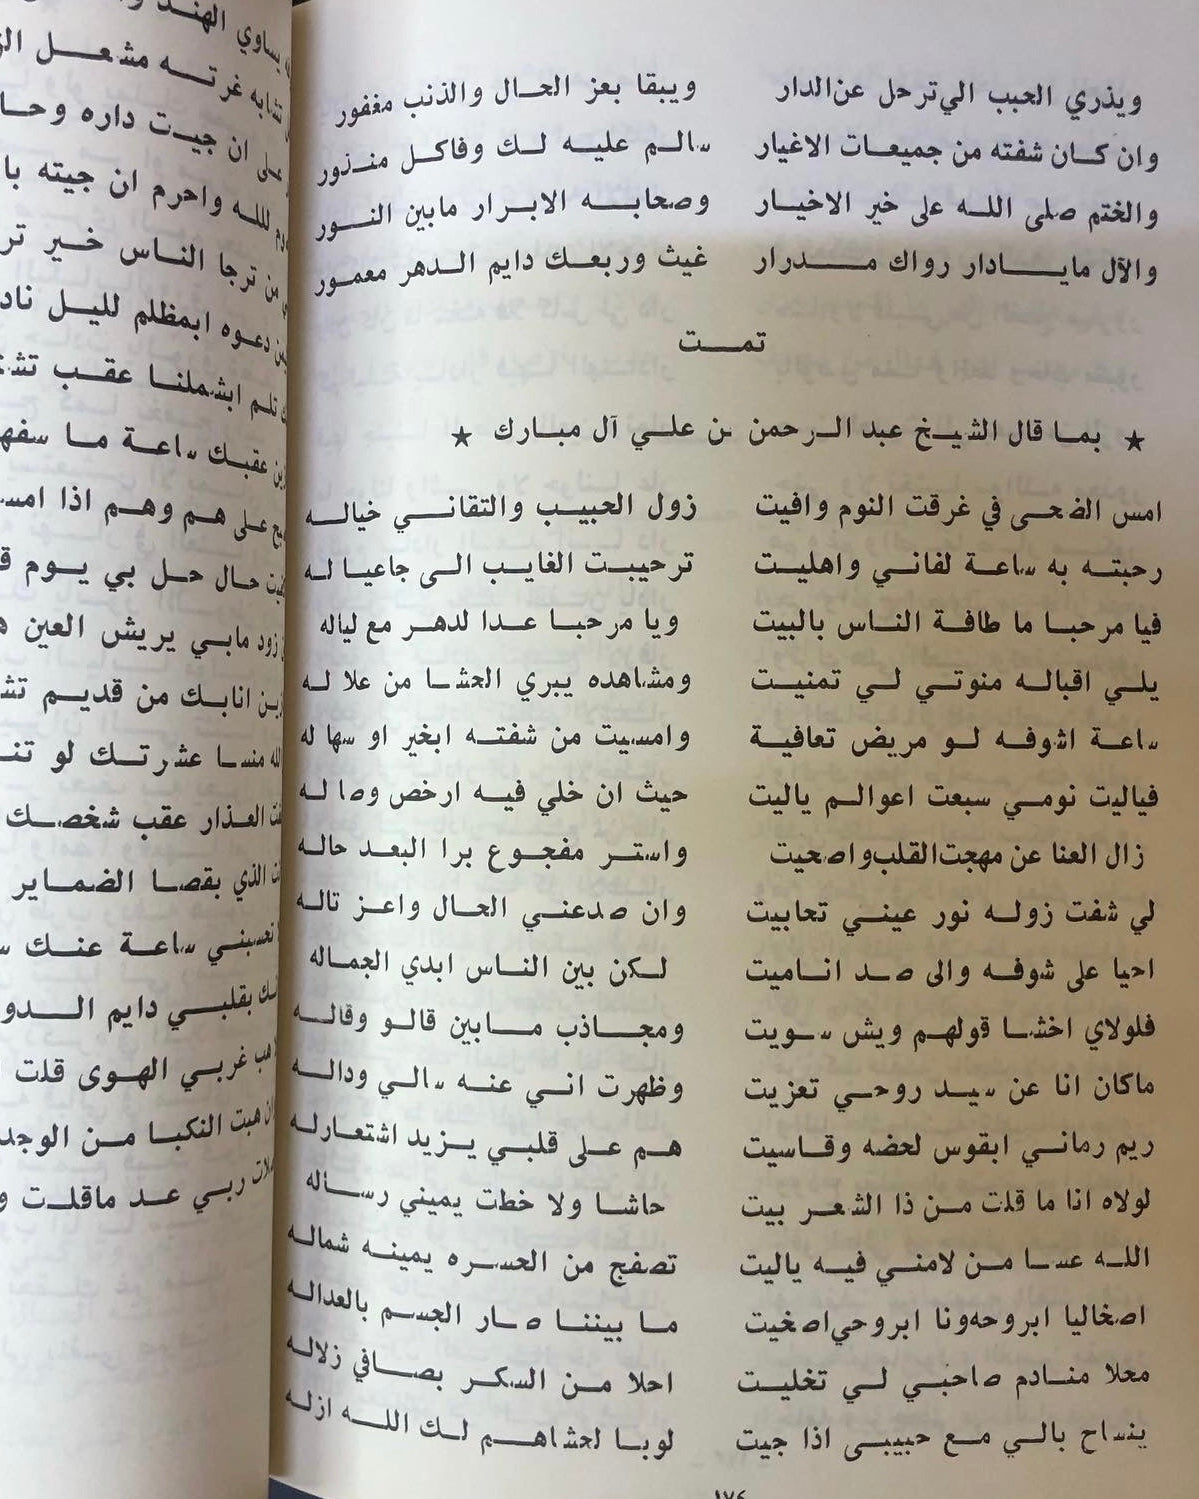 ويذري الحبب الي ترحل عن الدار ويبقا بعز الحال والذنب مغفور
وان كان شفته من جميعات الاغيار سالم عليه لك وفاكل منذور
والختم صلى الله على خير الاخيار وصحابه الابرار مابين النور
والآل مايادار رواك مدرار غيث وربعك دايم الدهر معمور
تمت
★ بما قال الشيخ عبد الرحمن بن علي آل مبارك ★
امس الضحى في غرقت النوم وافيت زول الحبيب والتقاني خياله
رحبته به ساعة لفاني واهليت ترحيبت الغايب الى جاعيا له
فيا مرحبا ما طافة الناس بالبيت ويا مرحبا عدا لدهر مع لياله
يلي اقباله منوتي لي تمنيت ومشاهده يبري الحشا من علا له
ساعة اشوفه لو مريض تعافية وامسيت من شفته ابخير او سها له
فياليت نومي سبعت اعوالم ياليت حيث ان خلي فيه ارخص وصاله
زال العنا عن مهجت القلب واصحيت واستر مفجوع برا البعد حاله
لي شفت زوله نور عيني تحابيت وان صدعني الحال واعز تاله
احيا على شوفه والى صد اناميت لكن بين الناس ابدي الجماله
فلولاي اخشا قولهم ويش سويت ومجاذب مابين قالو وقاله
ماكان انا عن سيد روحي تعزيت وظهرت اني عنه سالي وداله
ريم رماني ابقوس لحضه وقاسيت هم على قلبي يزيد اشتعارله
لولاه انا ما قلت من ذا الشعر بيت حاشا ولا خطت يميني رساله
الله عسا من لامني فيه ياليت تصفج من الحسره يمينه شماله
اصخاليا ابروحه ونا ابروحي اصخيت ما بيننا صار الجسم بالعداله
محلا منادم صاحبي لي تخليت احلا من السكر بصافي زلاله
ينساح بالي مع حبيبي اذا جيت لوبا لحشاهم لك الله ازله
١٧٤
يساوي الهند
تشابه غرته مشعل
على ان جيت داره وحا
لله واحرم ان جيته با
من ترجا الناس خير تر
دعوه ابمظلم لليل ناد
تلم ابشملنا عقب تشت
عقبك ساعة ما سفه
على هم وهم اذا امس
حال حل بي يوم ق
زود مابي يريش العين
انابك من قديم تش
منسا عشرتك لو تن
العذار عقب شخصك
الذي بقصا الضماير
تحسبني ساعة عنك س
بقلبي دايم الدو
هب غربي الهوى قلت
هبت النكبا من الوجد
ربي عد ماقلت و